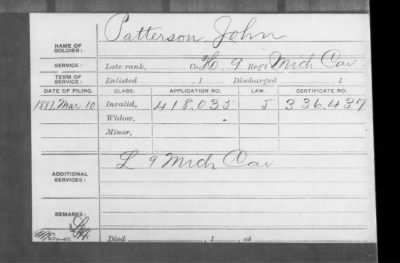 Patterson, John
NAME OF SOLDIER:
SERVICE: Late rank, Co. H, 9 Reg't Mich Cav
TERM OF SERVICE: Enlisted , 1 Discharged , 1
DATE OF FILING. CLASS. APPLICATION NO. LAW. CERTIFICATE NO.
1881, Mar 10 Invalid, 418,035 J 336,437
Widow,
Minor,
L 9 Mich Cav
ADDITIONAL SERVICES:
REMARKS:
Died , 1 , at